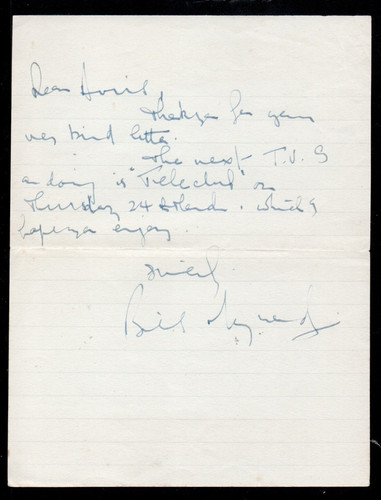 Dear Avril,
Thankyou for your
very kind letter.
The next T.V. I
am doing is "Teleclub" on
Thursday 24th March. which I
hope you enjoy.
Sincerely.
Bill Maynard.